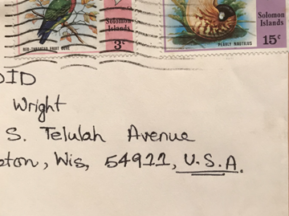 Solomon
Islands
3c
RED-THROATED FRUIT DOVE
Solomon
Islands
15c
PEARLY NAUTILUS
DID
Wright
S. Telulah Avenue
ton, Wis, 54911, U.S.A.